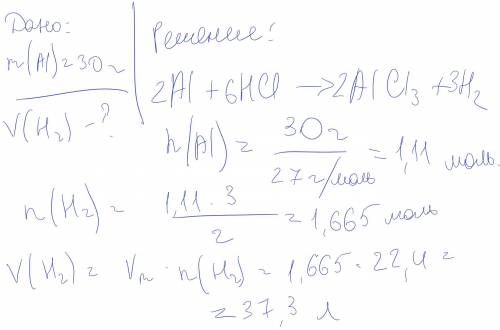 Дано:
m(Al)=30г
V(H₂) – ?
Решение:
2Al + 6HCl → 2AlCl₃ + 3H₂
n(Al) = 30г / 27г/моль = 1,11 моль.
n(H₂) = 1,11 · 3 / 2 = 1,665 моль
V(H₂) = Vₘ · n(H₂) = 1,665 · 22,4 =
= 37,3 л